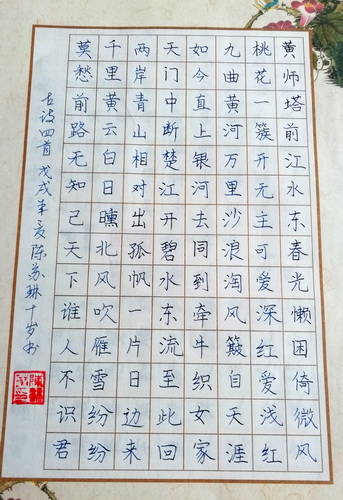 黄师塔前江水东春光懒困倚微风
桃花一簇开无主可爱深红爱浅红
九曲黄河万里沙浪淘风簸自天涯
如今直上银河去同到牵牛织女家
天门中断楚江开碧水东流至此回
两岸青山相对出孤帆一片日边来
千里黄云白日曛北风吹雁雪纷纷
莫愁前路无知己天下谁人不识君
古诗四首 戊戌年夏陈苏琳十岁书